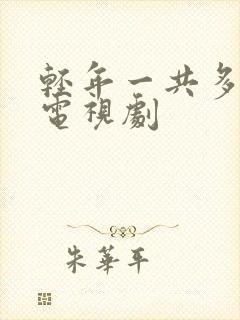 輕年一共多
電視劇
朱華平